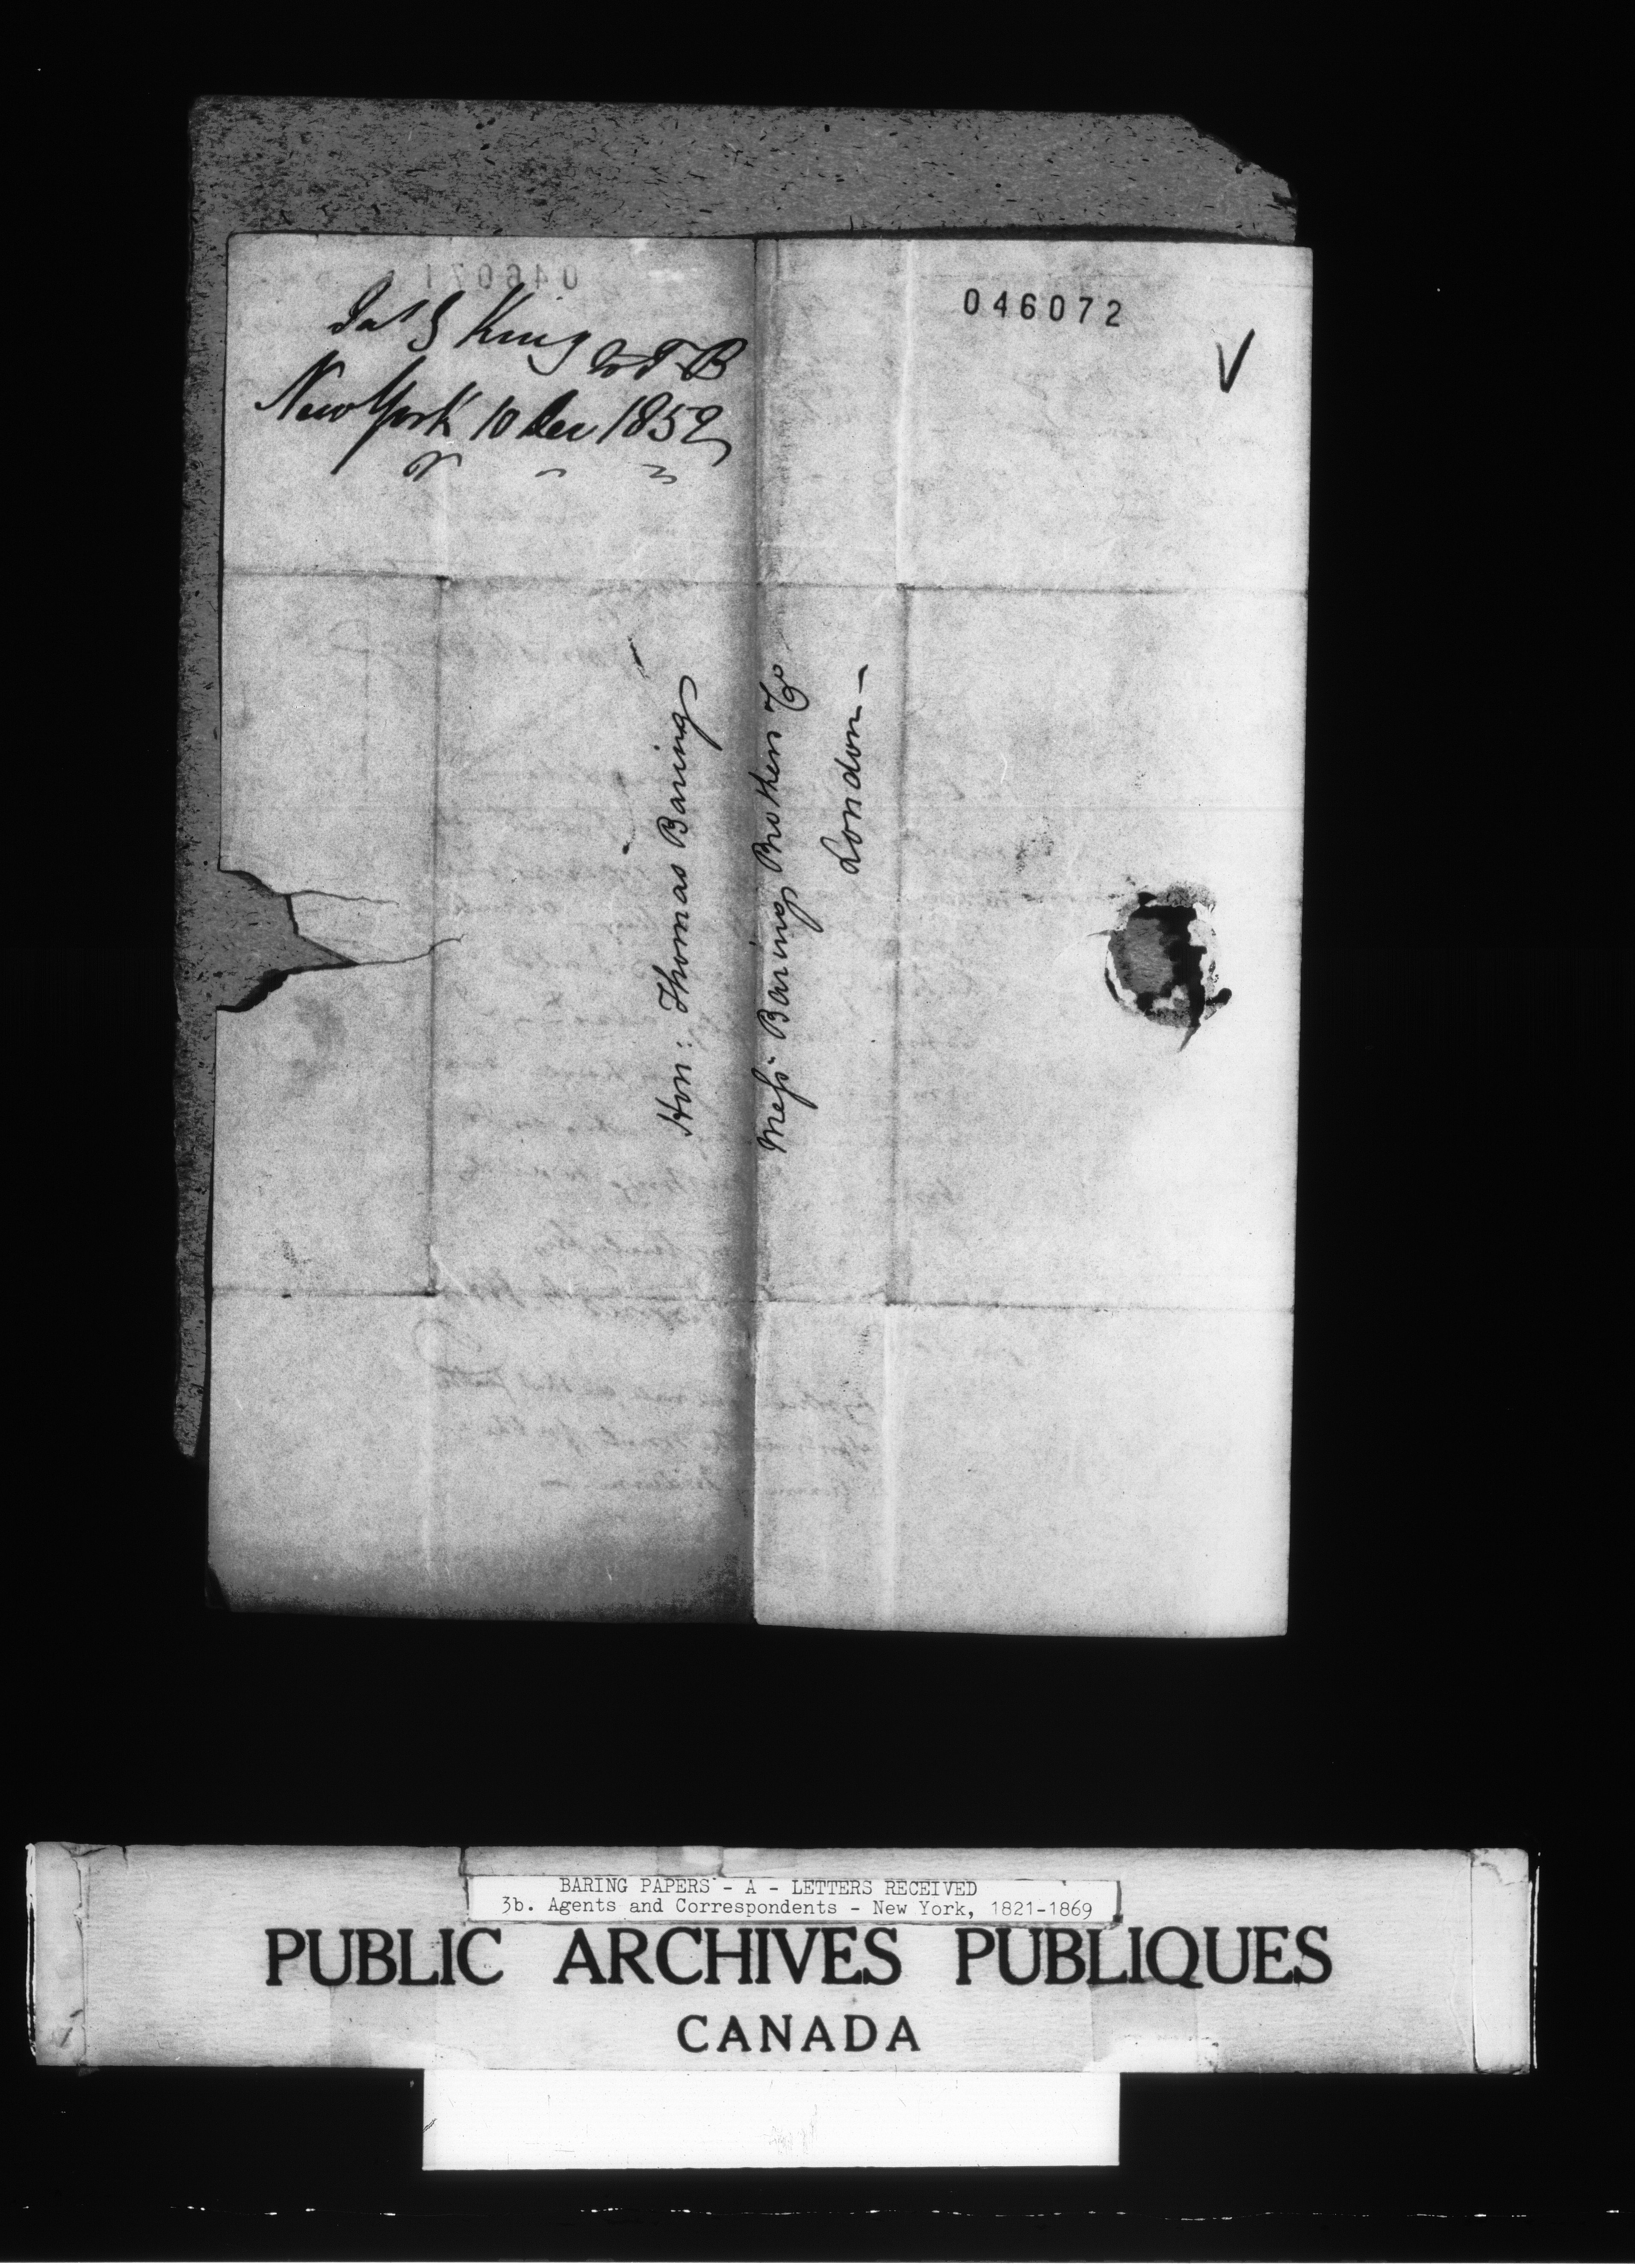 046072
V
Jas G King to T. B
New York 10 Dec 1852
Hon: Thomas Baring
Messrs. Baring Brothers & Co
London
BARING PAPERS - A - LETTERS RECEIVED
3b. Agents and Correspondents - New York, 1821-1869
PUBLIC ARCHIVES PUBLIQUES
CANADA